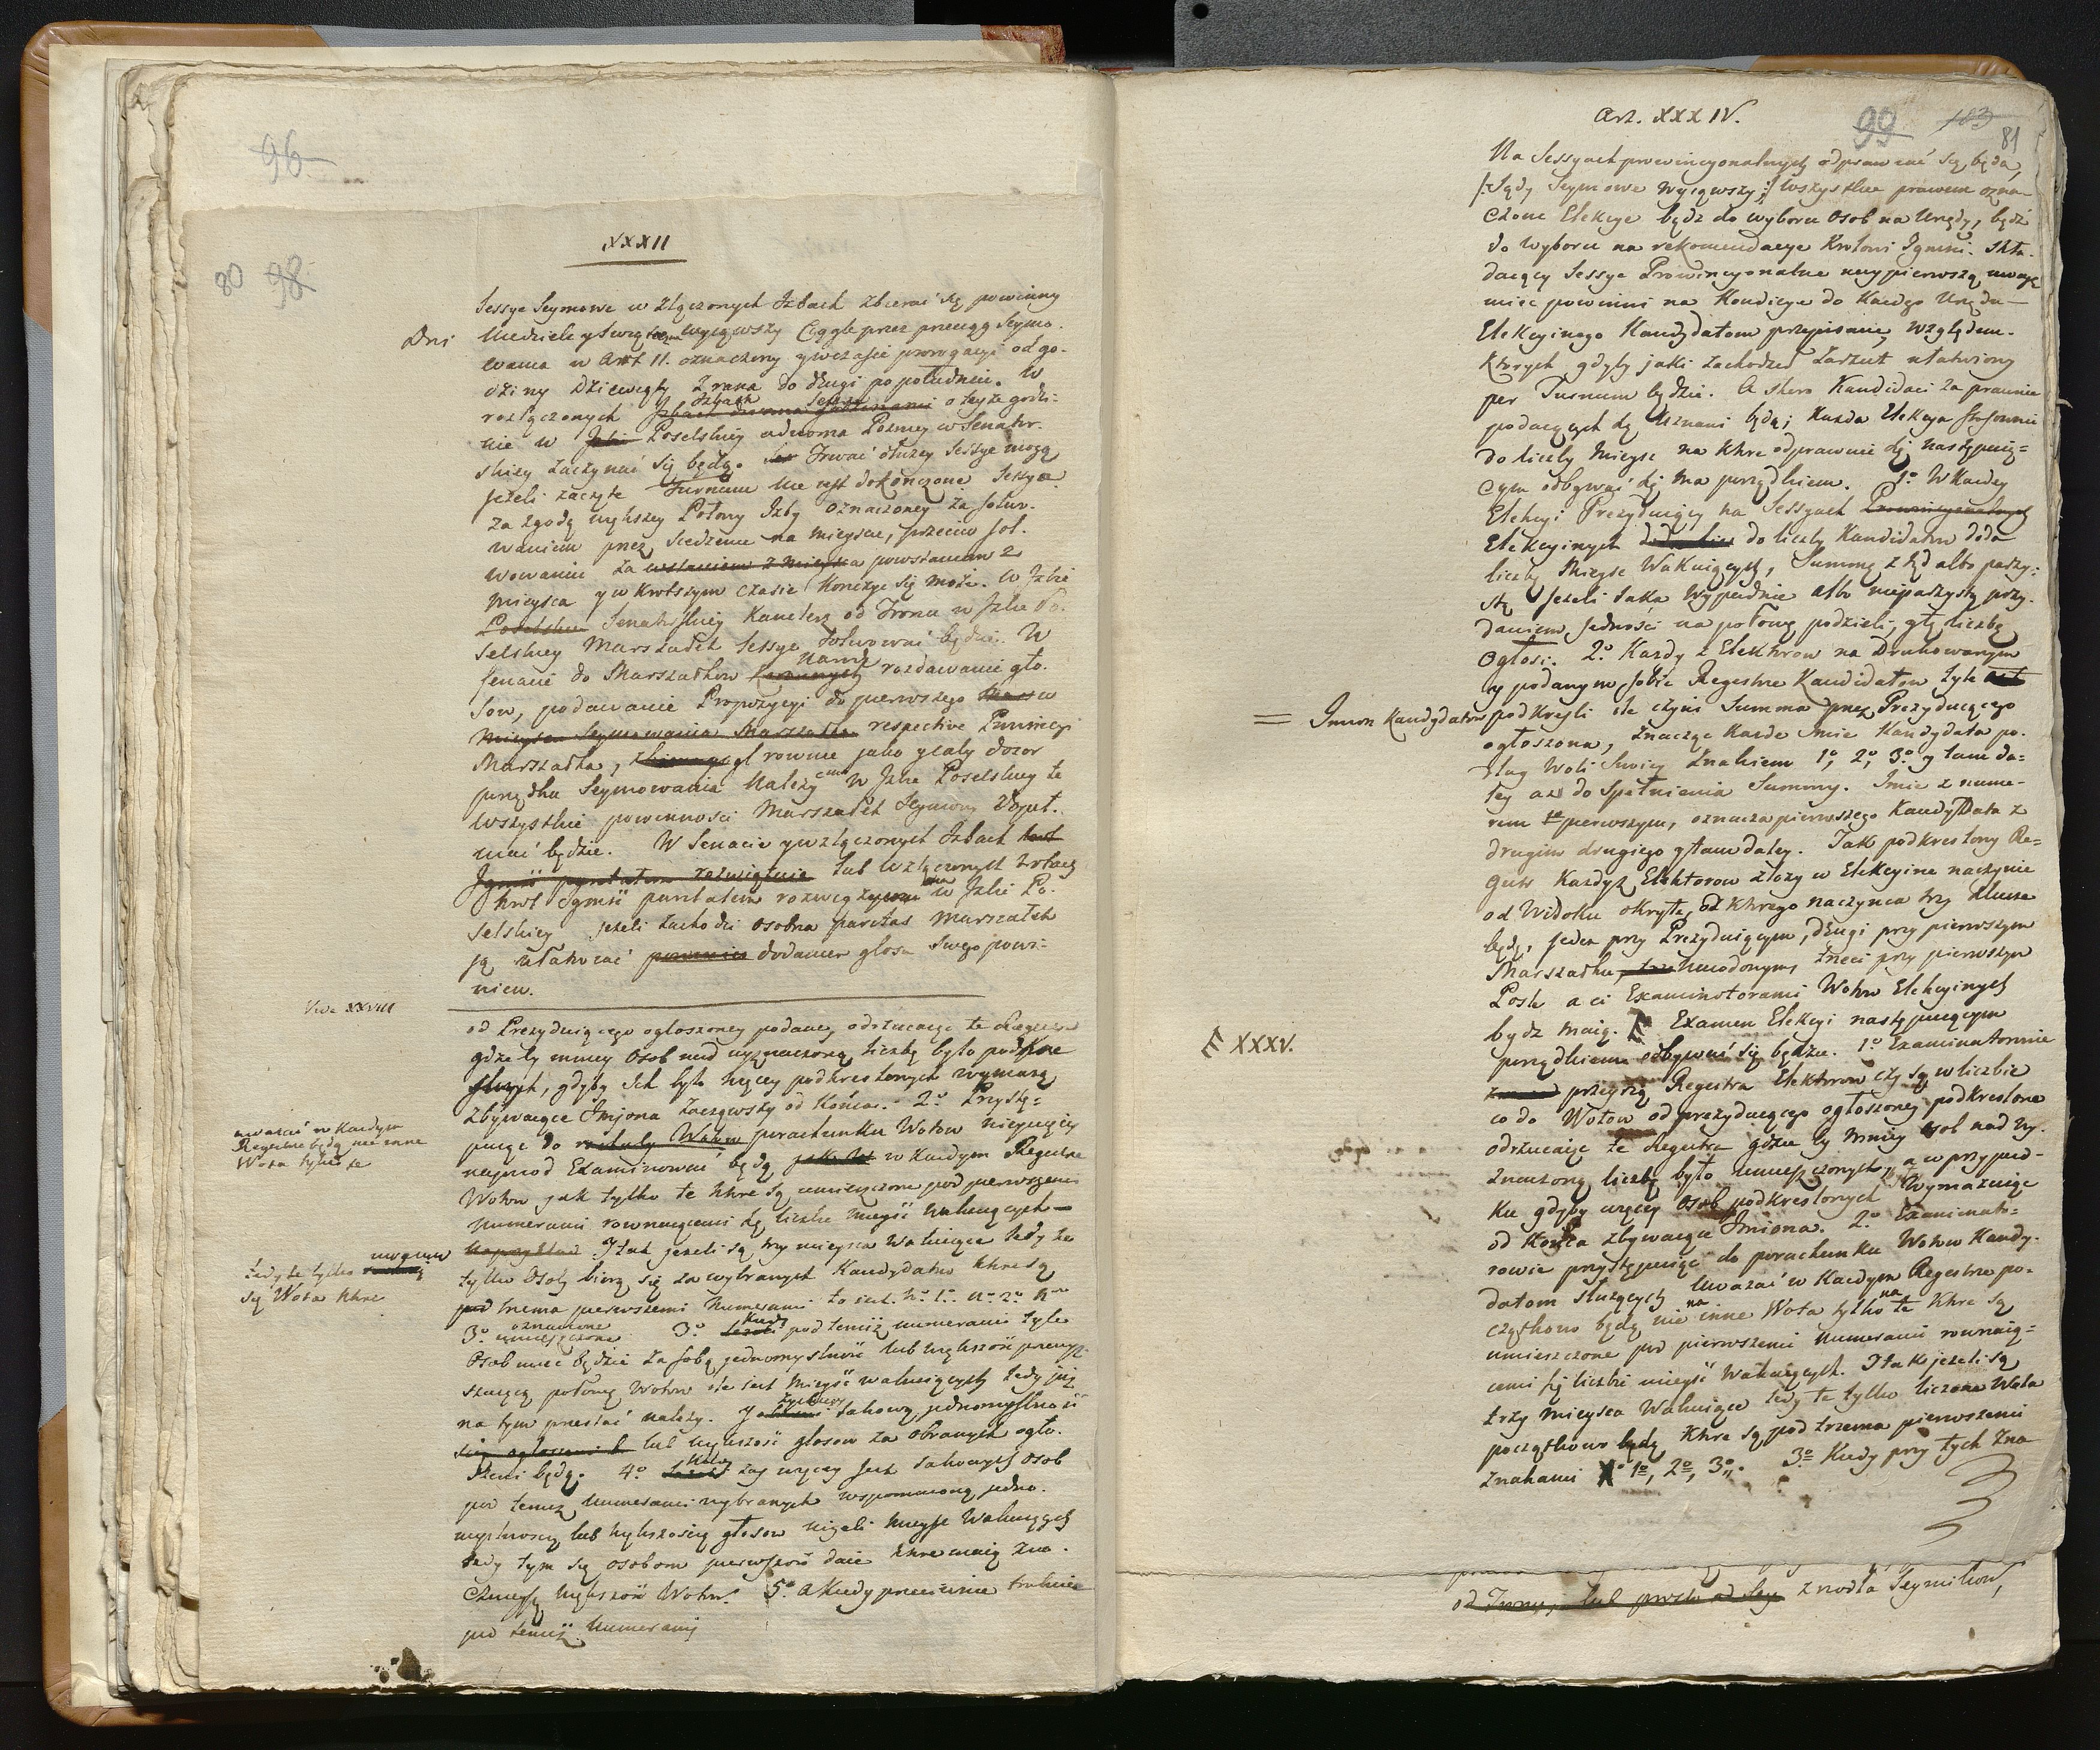 96
80 98
XXXII
Sessye Seymowe w Złączonych Izbach zbierać się powinny
Dni Niedziele y Swięta wyiąwszy Ciągle przez przeciąg Seymo-
wania w Art 11. oznaczony y w czasie prorogacyi od go-
dziny Dziewiąty Z rana do drugi po południu. W
rozłączonych Izbach Sessye o teyże godzi-
nie w Izbie Poselskiey a dwoma Pozniey w Senator-
skiey zaczynać się będą. Trwać dłużey Sessye mogą
jeżeli zaczęte Turnum nie jest dokończone Sessya
za zgodą większey Połowy Izby oznaczoney za solwo-
waniem przez siedzenie na mieyscu, przeciw sol-
wowaniu za wstaniem z mieysca powstaniem z
mieysca y w krotszym czasie kończyc się może. W Izbie
Poselskiey Senatorskiey Kanclerz od Tronu w Izbie Po-
selskiey Marszałek Sessye Solwować będzie. W
senacie do Marszałkow rozdawanie gło-
sow, podawanie Propozycyi do pierwszego
Mieysca Seymowania Marszałka respective Prowincyi
Marszałka, rownie jako y cały dozor
porządku Seymowania należy w Izbie Poselskiey te
wszystkie powinności Marszałek Seymowy
wać będzie. W Senacie y w złączonych Izbach
lub w złączonych Izbach
Krol Jgmść paritatem rozwiąże w Izbie Po-
selskiey jeżeli zachodzi osobna paritas Marszałek
ją ułatwiać dodaniem głosu Swego powi-
nien.
Vide XXVIII
od Prezyduiącego ogłoszoney podaney odrzucaiąc te Regestra
gdzie by mniey Osob nad wyznaczoną liczbę było podkre
slonych, gdyby Ich było więcey podkreslonych wymażą
zbywaiące Imiona zacząwszy od Końca. 2o Przystę-
puiąc do rachuby Wotow porachunku Wotow
uważać w Każdym
Regestrze będą nie inne
Wota tylko te
nayprzod Examinować będą w Każdym Regestrze
Wotow jak tylko te ktore są umieszczone pod pierwszemi
numerami rownaiącemi się liczbie mieysc wakuiących
Naprzykład I tak jeżeli są trzy mieysca Wakuiące tedy te
tedy te tylko
są Wota ktore
tylko Osoby biorą się za wybranych Kandydatow ktore są
pod trzema pierwszemi Numerami to jest No 1o No 2o No
3o oznaczone umieszczone 3o Kiedy jeżeli pod temiż numerami tyle
Osob miec będzie za sobą jednomyslność lub większość przewyż-
szaiącą połowę Wotow ile jest Mieysc wakuiących tedy już
na tym przestać należy. y takową jednomyslność
lub większość głosow za obranych ogło-
szeni będą. 4o Kiedy zaś więcey jest takowych osob
pod temiż numerami wybranych wspomnioną jedno-
myslnoscią lub większością głosow niżeli mieysc Wakuiących
tedy tym się osobom pierwszość daie ktore maią zna-
cznieyszą większość Wotow. 5o A Kiedy przeciwnie
pod temiż Numerami
Art. XXXIV.
99 183
81
Na Sessyach prowincyonalnych odprawiać się będą,
/:Sądy Seymowe wyiąwszy:/ wszystkie prawem ozna-
czone Elekcye bądz do wyboru Osob na Urzędy, będź
do wyboru na rekomendacye Krolowi Jgmści. Skła-
daiący Sessye Prowincyonalne naypierwszą uwagę
miec powinni na Kondycye do Każdego Urzędu
Elekcyinego Kandydatom przepisane, względem
ktorych gdyby jaki zachodził Zarzut ułatwiony
per Turnum będzie. A skoro Kandidaci za prawnie
podaiących się Uznani będą; Każda Elekcya stosownie
do liczby mieysc na ktore odprawuie się następuią-
cym odbywać się ma porządkiem. 1o W Każdey
Elekcyi Prezyduiący na Sessyach Prowincyonalnych
Elekcyinych do liczby Kandidatow doda
liczbę Mieysc Wakuiących, Summę z tąd albo parzy-
stą jeżeli taka wypadnie albo nieparzystą przy-
daniem jedności na połowę podzieli, y tę liczbę
Ogłosi. 2o Każdy z Elektorow na Drukowanym
y podanym sobie Regestrze Kandidatow tyle
= Imion Kandydatow podkreśli ile czyni Summa przez Prezyduiącego
ogłoszona, znacząc Każde Imie Kandydata po-
dług Woli Swoiey Znakiem 1o, 2o, 3o y tam da-
ley aż do Spełnienia Summy. Imie z nume-
rem pierwszym, oznacza pierwszego Kandydata z
drugim drugiego y tam daley. Tak podkreslony Re-
gestr Każdy z Elektorow złoży w Elekcyine naczynie
od Widoku okryte, od ktorego naczynia trzy klucze
będą, jeden przy Prezyduiącym, drugi przy pierwszym
Marszałku, trzeci przy pierwszym
Pośle a ci Examinatorami Wotow Elekcyinych
bydz maią. Examen Elekcyi następuiącym
XXXV.
porządkiem odbywać się będzie. 1o Examinatorowie
przeyrzą Regestra Elektorow czy są w liczbie
co do Wotow od prezyduiącego ogłoszoney podkreslone
odrzucaiąc te Regestra gdzie by mniey osob nad wy-
znaczoną liczbę było umieszczonych, a w przypad-
ku gdyby więcey Osob podkreslonych Wymazuiąc
od Końca zbywaiące Imiona. 2o Examinato-
rowie przystępuiąc do porachunku Wotow Kandy-
datom służących Uważać w Każdym Regestrze po-
czątkowo będą nie na inne Wota tylko na te ktore są
umieszczone pod pierwszemi numerami rownaią-
cemi się liczbie mieysc Wakuiących. I tak jeżeli są
trzy mieysca Wakuiące tedy te tylko liczone Wota
początkowo będą ktore są pod trzema pierwszemi
znakami No 1o, 2o, 3o. 3o Kiedy przy tych Zna
od Tronu, lub prosto od Sey z nodła Seymikow,